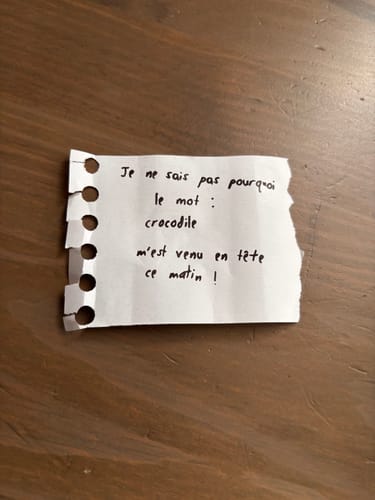 Je ne sais pas pourquoi
le mot :
crocodile
m'est venu en tête
ce matin !